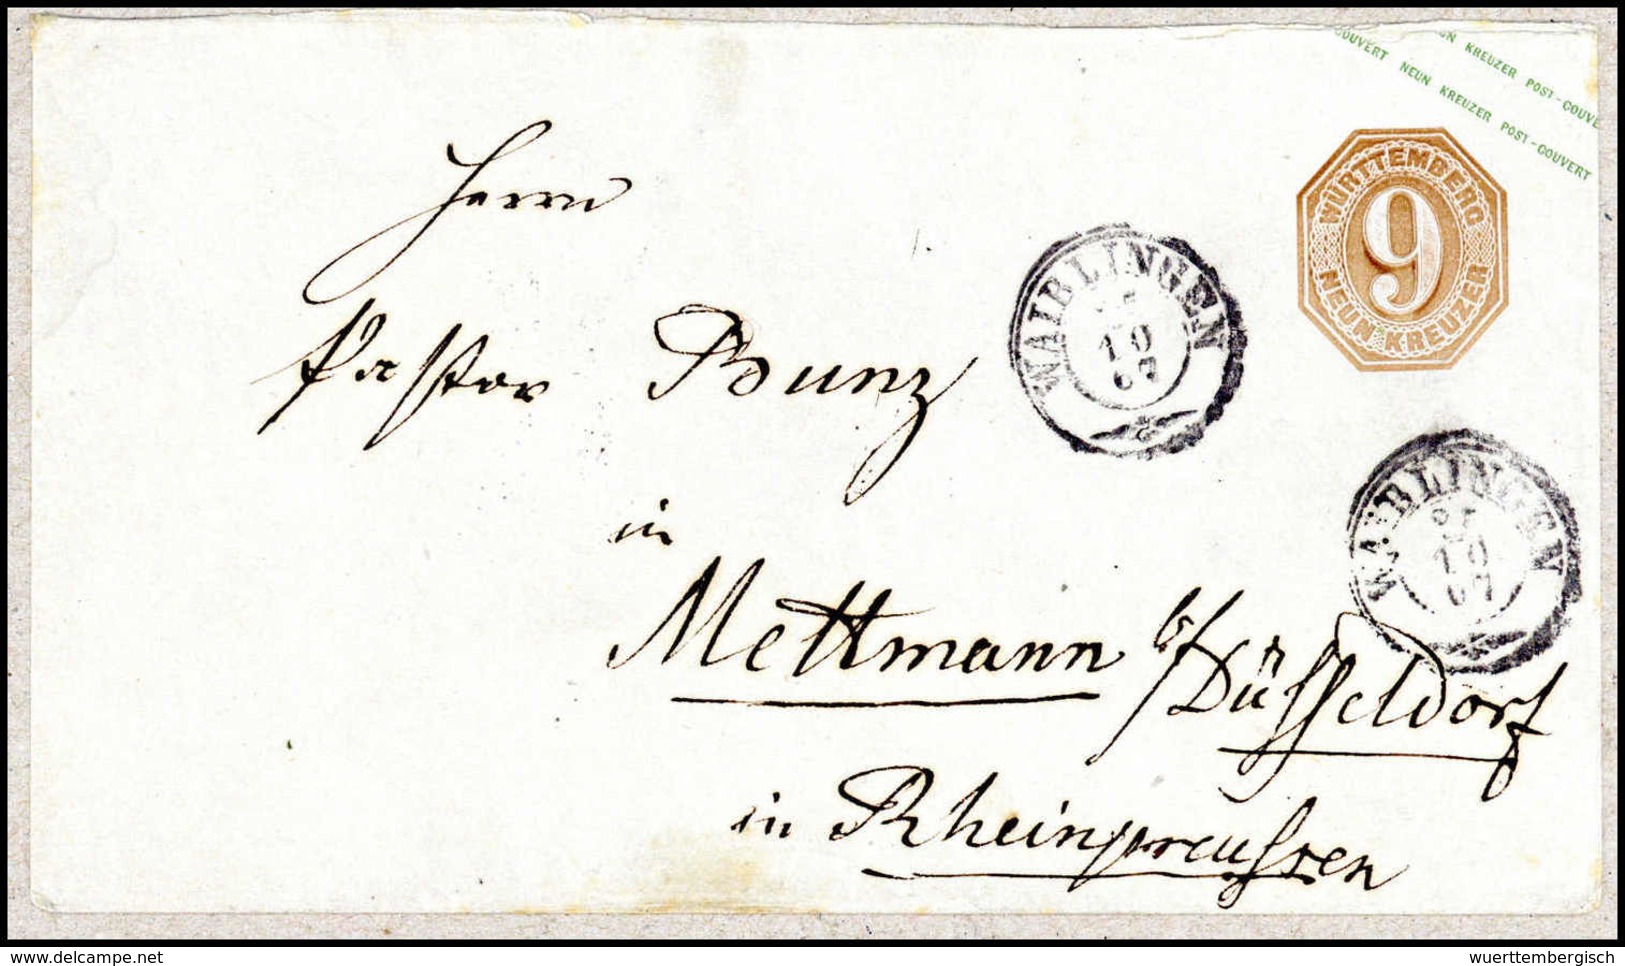 UN KREUZER POST-COUVE
COUVERT NEUN KREUZER POST-COUVERT
WÜRTTEMBERG
9
NEUN KREUZER
Herrn
Pastor Bunz
WAIBLINGEN
10
67
in
WAIBLINGEN
10
67
Mettmann b/Düsseldorf
in Rheinpreussen
www.delcampe.net
wuerttembergisch